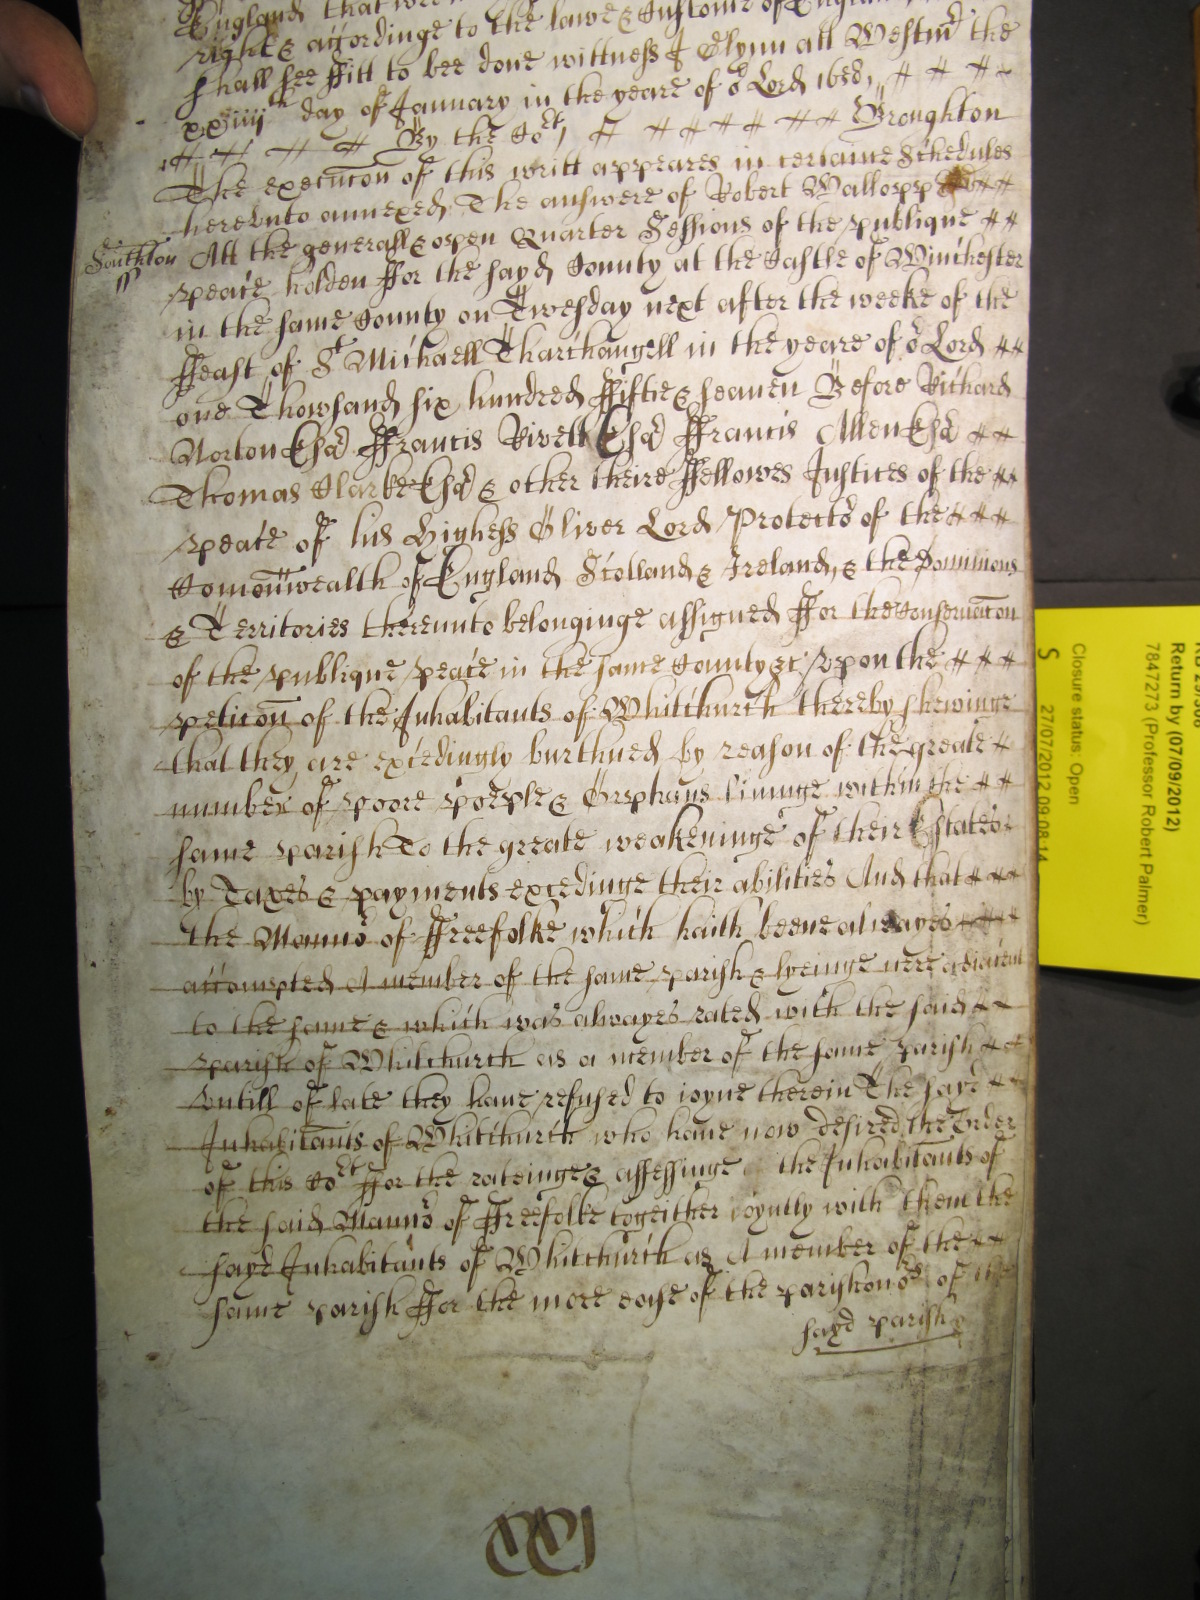 England that wee
right & accordinge to the lawe & Custome of England
shall see ffitt to bee done wittness J Glynn att Westmr the
xxiiijth day of January in the yeare of or Lord 1658,
By the Cort, Broughton
The execucon of this writt appeares in certaine Schedules
herevnto annexed. The answere of Robert Wallopp
Southton
ss
Att the generall & open Quarter Sessions of the publique
peace holden ffor the sayd County at the Castle of Winchester
in the same County on Twesday next after the weeke of the
ffeast of St Michaell Tharchangell in the yeare of or Lord
one Thowsand six hundred ffiftie & seaven Before Richard
Norton Esqr ffrancis Rivett Esqr ffrancis Allen Esqr
Thomas Clarke Esqr & other theire ffellowes Justices of the
peace of his Highess Oliver Lord Protector of the
Comonwealth of England Scotland & Ireland, & the Dominions
& Territories thereunto belonginge assigned ffor the Conservacon
of the publique peace in the same County &c: vpon the
peticon of the Inhabitants of Whitchurch thereby shewinge
that they are excedingly burthned by reason of the greate
number of poore people & Orphans liuinge within the
same parish To the greate weakeninge of their Estates
by Taxes & payments excedinge their abilities And that
the Mannor of ffreefolke which hath beene alwayes
accompted A member of the same parish & lyeinge nere adiacent
to the same & which was alwayes rated with the said
parish of Whitchurch as a member of the same parish
vntill of late they haue refused to ioyne therein The sayd
Inhabitants of Whitchurch who haue now desired the Order
of this Cort ffor the rateinge & assessinge the Inhabitants of
the said Mannor of ffreefolke togeither ioyntly with them the
sayd Inhabitants of Whitchurch as A member of the
same parish ffor the more ease of the parishonors of the
sayd parish
Return by (07/09/2012)
7847273 (Professor Robert Palmer)
Closure status: Open
S 27/07/2012 09:08:14